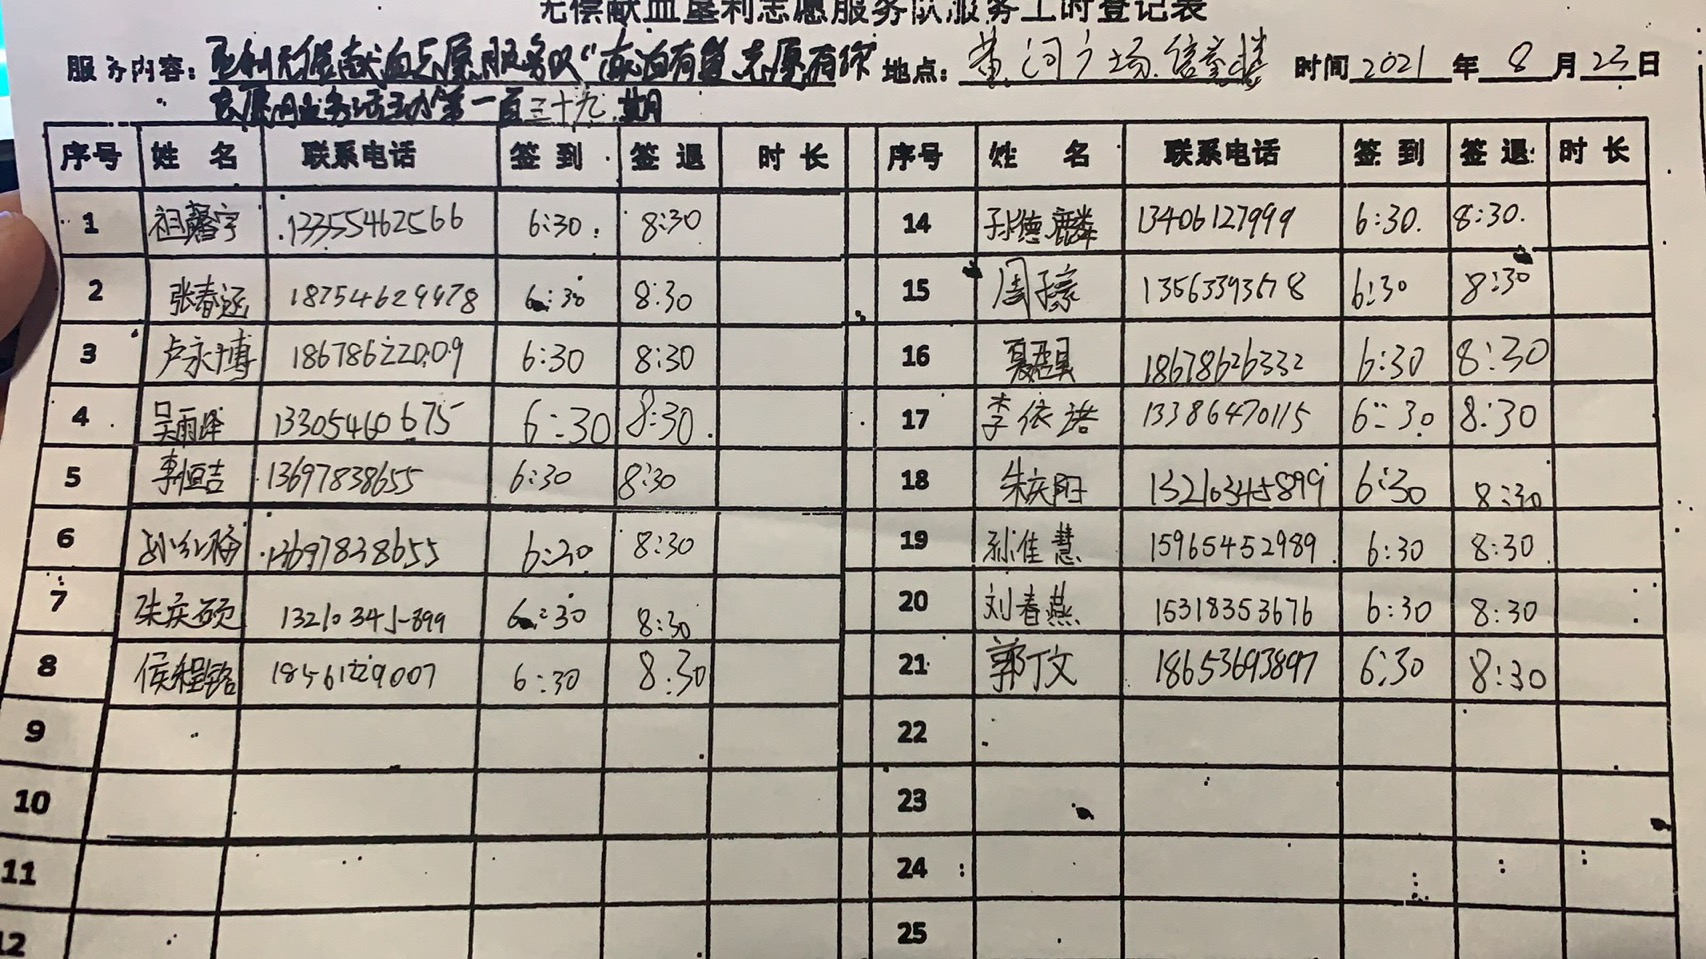 无偿献血垦利志愿服务队服务工时登记表
服务内容：垦利无偿献血志愿服务队"献血有爱 志愿有你" 地点：黄河广场 时间 2021 年 8 月 23 日
志愿服务活动第一百三十九期
序号 姓 名 联系电话 签 到 签 退 时 长 序号 姓 名 联系电话 签 到 签 退 时 长
1 祖馨宇 13355462566 6:30 8:30 14 孙德麟 13406127999 6:30 8:30
2 张春函 18754629978 6:30 8:30 15 周子豪 13563393678 6:30 8:30
3 卢永博 18678622009 6:30 8:30 16 18678626332 6:30 8:30
4 吴雨泽 13305460675 6:30 8:30 17 李依诺 13386470115 6:30 8:30
5 李恒吉 13697838655 6:30 8:30 18 朱庆阳 13210345899 6:30 8:30
6 13697838655 6:30 8:30 19 孙佳慧 15965452989 6:30 8:30
7 朱庆硕 13210345899 6:30 8:30 20 刘春燕 15318353676 6:30 8:30
8 侯程璐 18561229007 6:30 8:30 21 郭丁文 18653693897 6:30 8:30
9 22
10 23
11 24
12 25